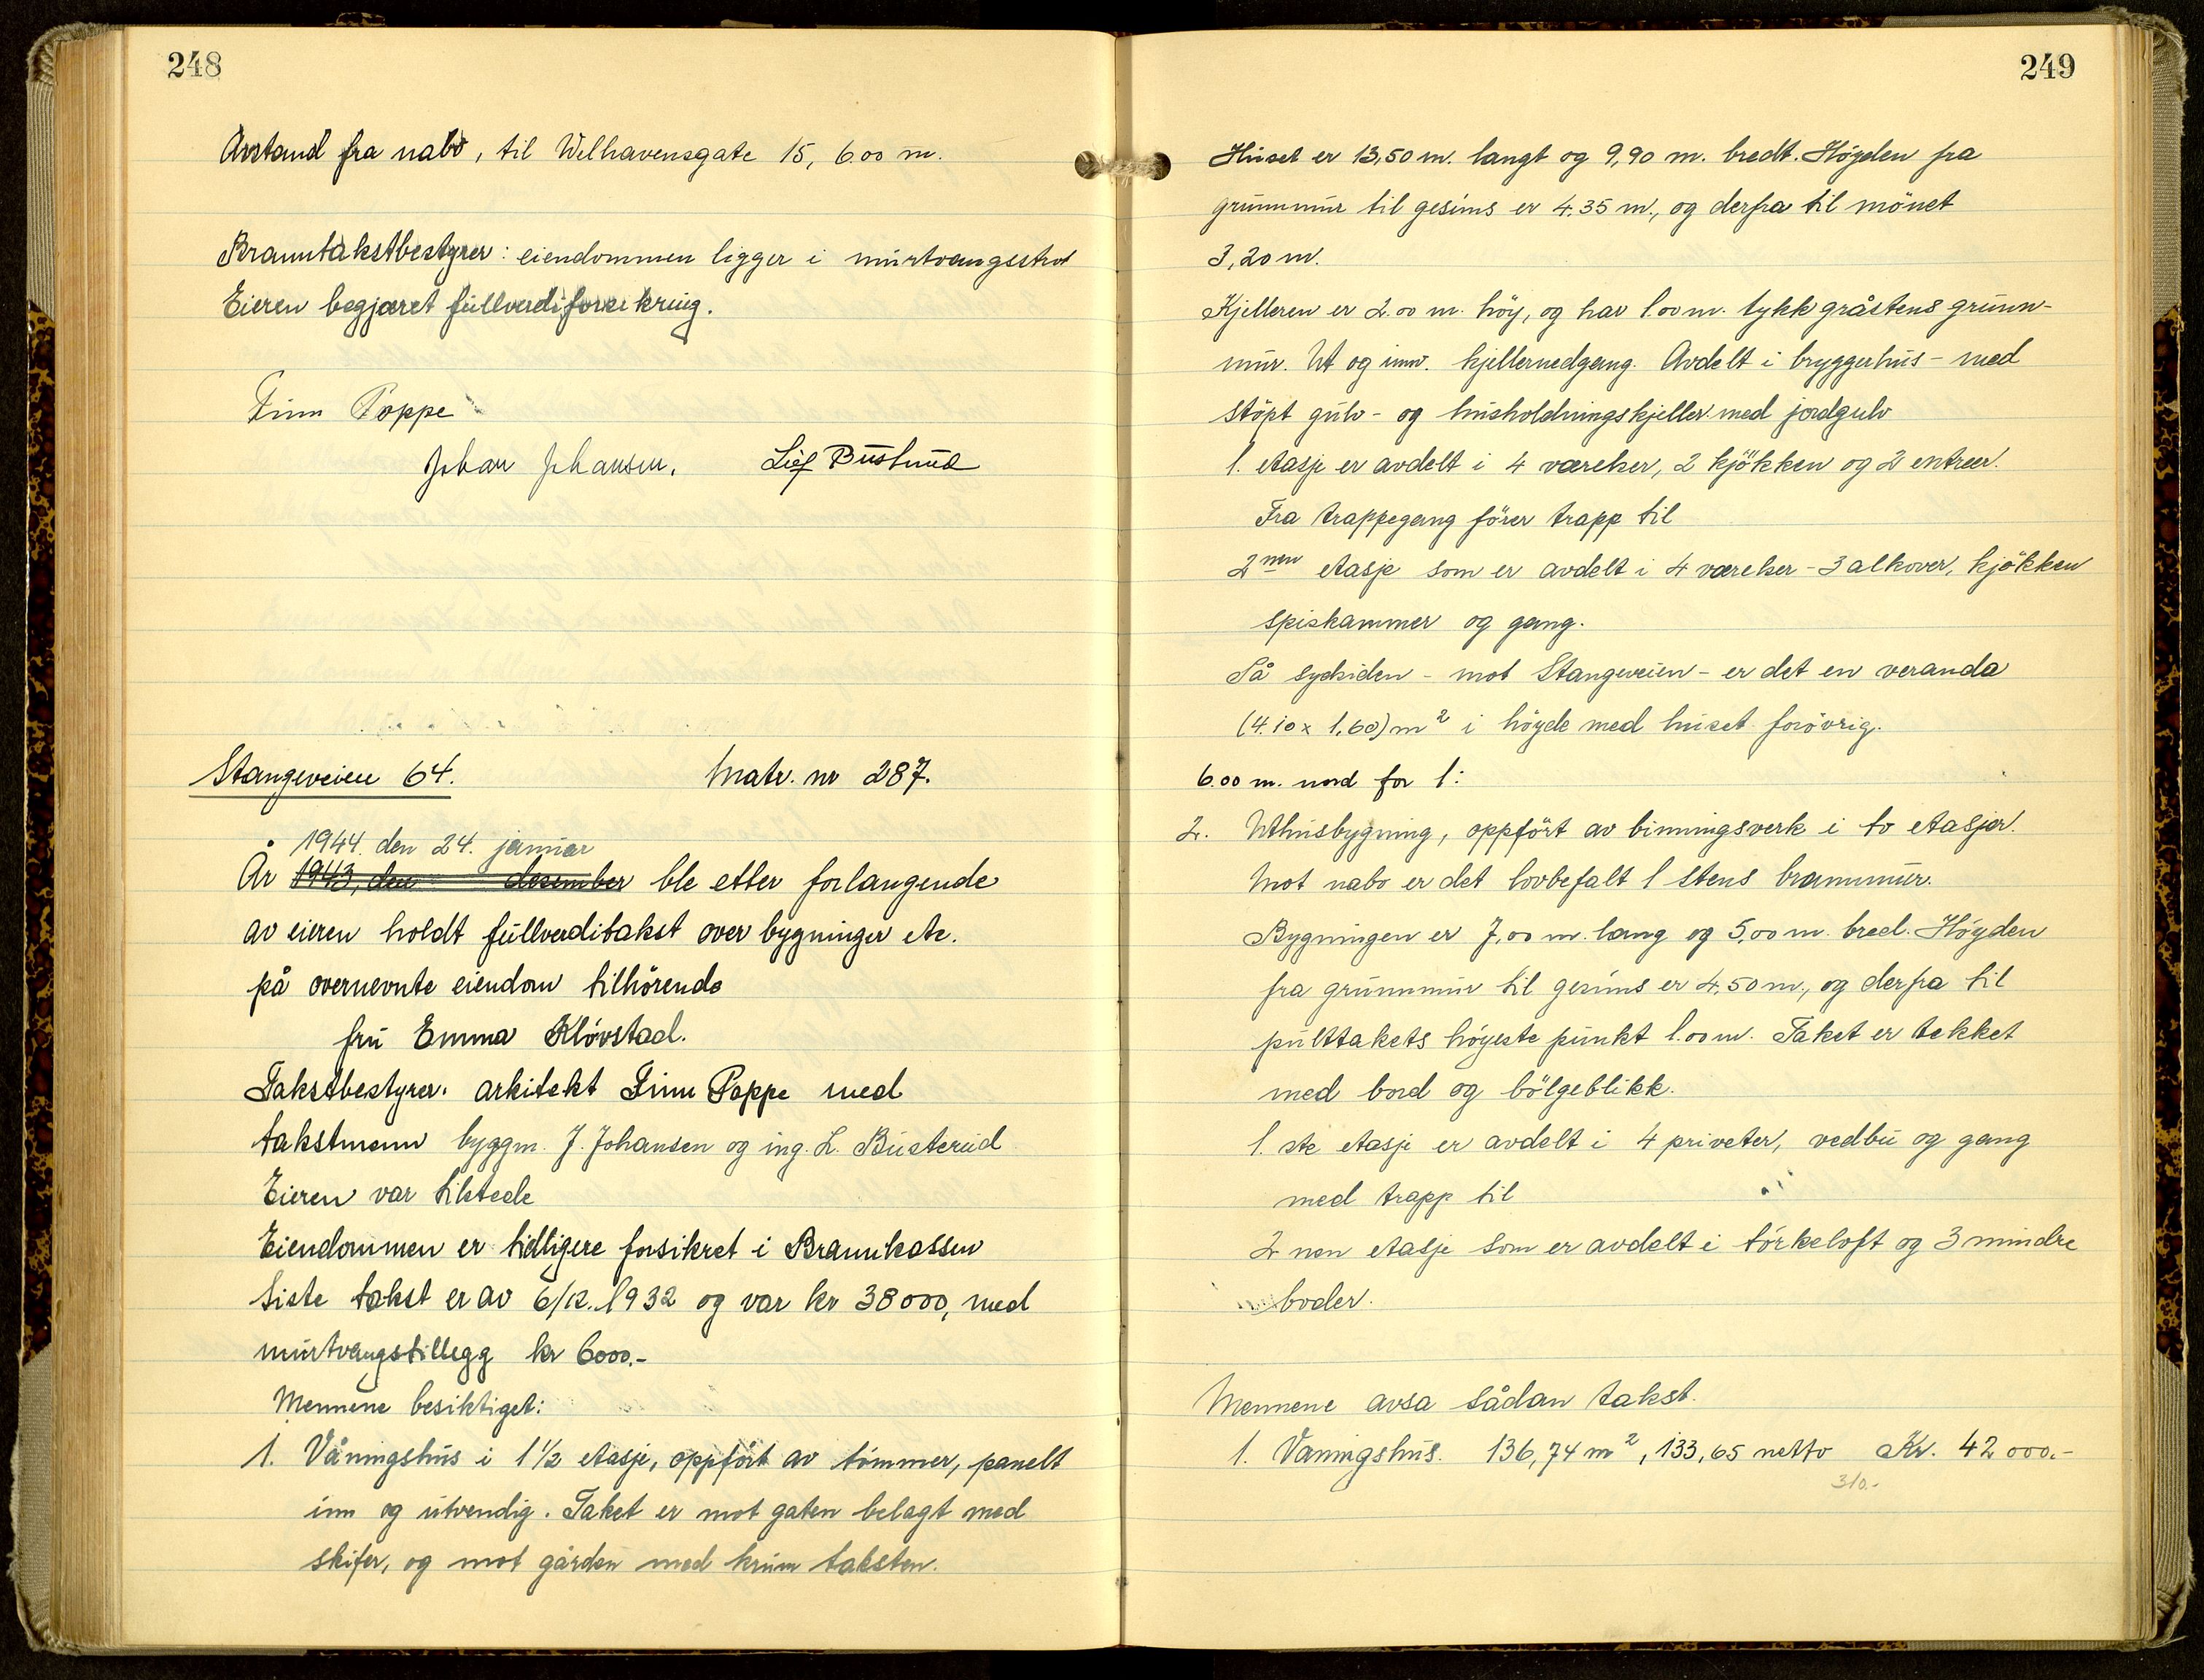 248
Avstand fra nabo, til Welhavensgate 15, 6.00 m.
Branntakstbestyrer: eiendommen ligger i murtvangsstrøk
Eieren begjæret fullverdiforsikring.
Finn Poppe
Johan Johansen. Leif Busterud
Stangeveien 64. Matr. nr 287.
1944. den 24. januar
År 1943, den desember ble etter forlangende
av eieren holdt fullverditakst over bygninger etc.
på overnevnte eiendom tilhörende
fru Emma Klövstad.
Takstbestyrer: arkitekt Finn Poppe med
takstmenn byggm. J. Johansen og ing. L. Busterud
Eieren var tilstede
Eiendommen er tidligere forsikret i Brannkassen
siste takst er av 6/12. 1932 og var kr 38000, med
murtvangstillegg kr 6000.-
Mennene besiktiget:
1. Våningshus i 1 1/2 etasje, oppfört av tömmer, panelt
inn og utvendig. Taket er mot gaten belagt med
skifer, og mot gården med krum taksten.
249
Huset er 13,50 m. langt og 9,90 m. bredt. Höyden fra
grunnmur til gesims er 4.35 m., og derfra til mönet
3,20 m.
Kjelleren er 2.00 m. höy, og har 1.00 m. tykk gråstens grunn-
mur. Ut og innv. kjellernedgang. Avdelt i bryggerhus - med
stöpt gulv - og husholdningskjeller med jordgulv
1. etasje er avdelt i 4 værelser, 2 kjökken og 2 entreer.
Fra trappegang förer trapp til
2nen etasje som er avdelt i 4 værelser - 3 alkover, kjökken
spiskammer og gang.
På sydsiden - mot Stangeveien - er det en veranda
(4.10 x 1,60) m² i höyde med huset forövrig.
6.00 m. nord for 1:
2. Uthusbygning, oppfört av binningsverk i to etasjer.
Mot nabo er det lovbefalt 1 stens brannmur.
Bygningen er 7,00 m. lang og 5,00 m. bred. Höyden
fra grunnmur til gesims er 4,50 m., og derfra til
pulttakets höyeste punkt 1.00 m. Taket er tekket
med bord og bölgeblikk.
1. ste etasje er avdelt i 4 priveter, vedbu og gang
med trapp til
2 nen etasje som er avdelt i törkeloft og 3 mindre
boder.
Mennene avsa sådan takst.
1. Vaningshus. 136,74 m², 133,65 netto Kr. 42 000.-
310.-